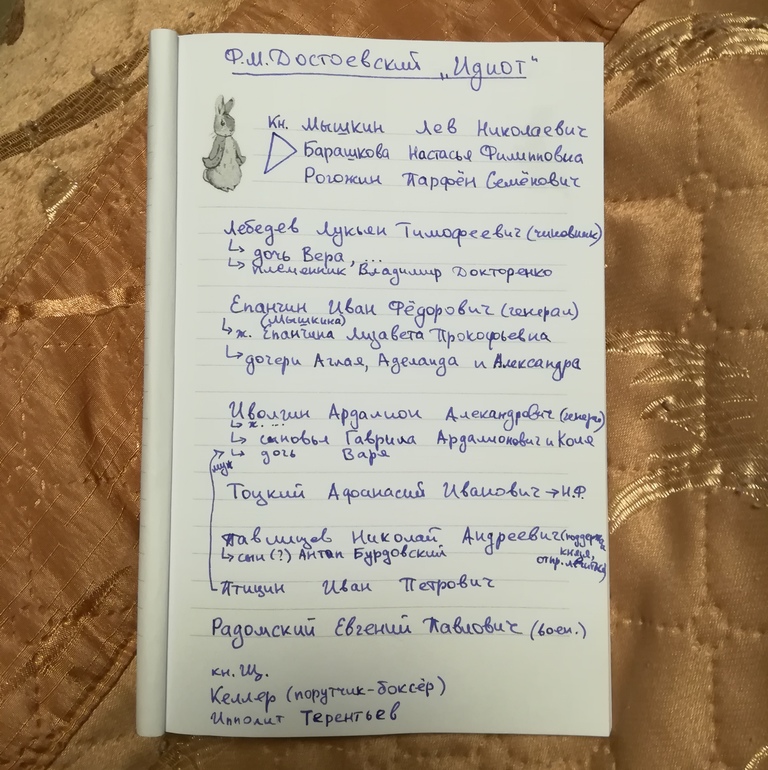 Ф.М.Достоевский „Идиот“
Кн. Мышкин Лев Николаевич
Барашкова Настасья Филипповна
Рогожин Парфён Семёнович
Лебедев Лукьян Тимофеевич (чиновник)
↳ дочь Вера, ...
↳ племенник Владимир Докторенко
Епанчин Иван Фёдорович (генерал)
(Мышкина)
↳ ж. Епанчина Лизавета Прокофьевна
↳ дочери Аглая, Аделаида и Александра
Иволгин Ардалион Александрович (генерал)
↳ ж. ...
↳ сыновья Гаврила Ардалионович и Коля
↳ дочь Варя
муж
Тоцкий Афанасий Иванович → Н.Ф.
Павлищев Николай Андреевич (поддерж.
князя,
↳ сын (?) Антип Бурдовский
отпр. лечиться)
Птицин Иван Петрович
Радомский Евгений Павлович (воен.)
кн. Щ.
Келлер (порутчик-боксёр)
Ипполит Терентьев